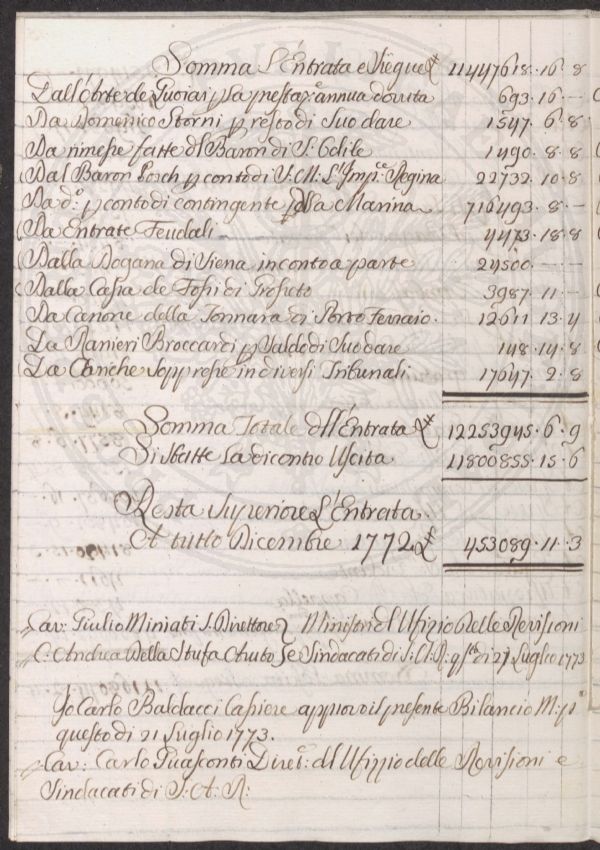 Somma L'Entrata e Siegue £ 11447618. 16. 8
Dall'Arte de Quoiai p la presta.ne annua dovuta 693. 16. —
Da Domenico Storni p resto di Suo dare 1547. 6. 8
Da rimesse fatte dl Baron di S: Odile 1490. 8. 8
Dal Baron Posch p conto di S: M: L'Imp.e Regina 22732. 10. 8
Da d.o p conto di contingente p la Marina 716493. 8. —
Da Entrate Feudali 4473. 18. 8
Dalla Dogana di Siena in conto a parte 24500. — —
Dalla Cassa de Fossi di Grosseto 3987. 11. —
Da Canone della Tonnara di Porto Ferraio. 12611. 13. 4
Da Ranieri Broccardi p Saldo di Suo dare 148. 14. 8
Da Cariche Soppresse in diversi Tribunali 17647. 2. 8
Somma Totale dll'Entrata £ 12253945. 6. 9
Si sbatte La dicontro Uscita 11800855. 15. 6
Resta Superiore L'Entrata
A tutto Dicembre 1772 £ 453089. 11. 3
Cav: Giulio Miniati S. Direttore Ministri dl Ufizio delle Revisioni
C. Andrea Della Stufa Aiuto e Sindacati di S: A: R: q.sto di 21 Luglio 1773
Io Carlo Baldacci Cassiere approvo il presente Bilancio M: p.a
questo di 21 Luglio 1773.
Cav: Carlo Guasconti Diret.e dl Ufizio delle Revisioni e
Sindacati di S: A: R: